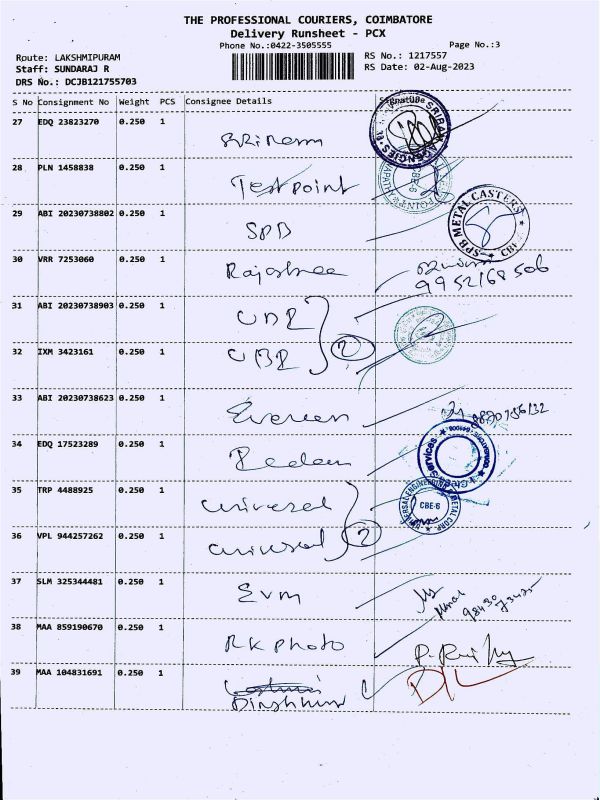 THE PROFESSIONAL COURIERS, COIMBATORE
Delivery Runsheet - PCX
Phone No.:0422-3505555 Page No.:3
Route: LAKSHMIPURAM RS No.: 1217557
Staff: SUNDARAJ R RS Date: 02-Aug-2023
DRS No.: DCJB121755703
S No Consignment No Weight PCS Consignee Details Signature
27 EDQ 23823270 0.250 1
SRIRAM AGENCIES
28 PLN 1458838 0.250 1
Testpoint
CBE-6
29 ABI 20230738802 0.250 1
SPB
SPB METAL CASTERS CBE
30 VRR 7253060 0.250 1
Rajashree
31 ABI 20230738903 0.250 1
32 IXM 3423161 0.250 1
2
33 ABI 20230738623 0.250 1
34 EDQ 17523289 0.250 1
Services
35 TRP 4488925 0.250 1
universal
UNIVERSAL ENGINEERING METAL CORP.
CBE-6
36 VPL 944257262 0.250 1
universal 2
37 SLM 325344481 0.250 1
EVM
38 MAA 859190670 0.250 1
RK photo
39 MAA 104831691 0.250 1